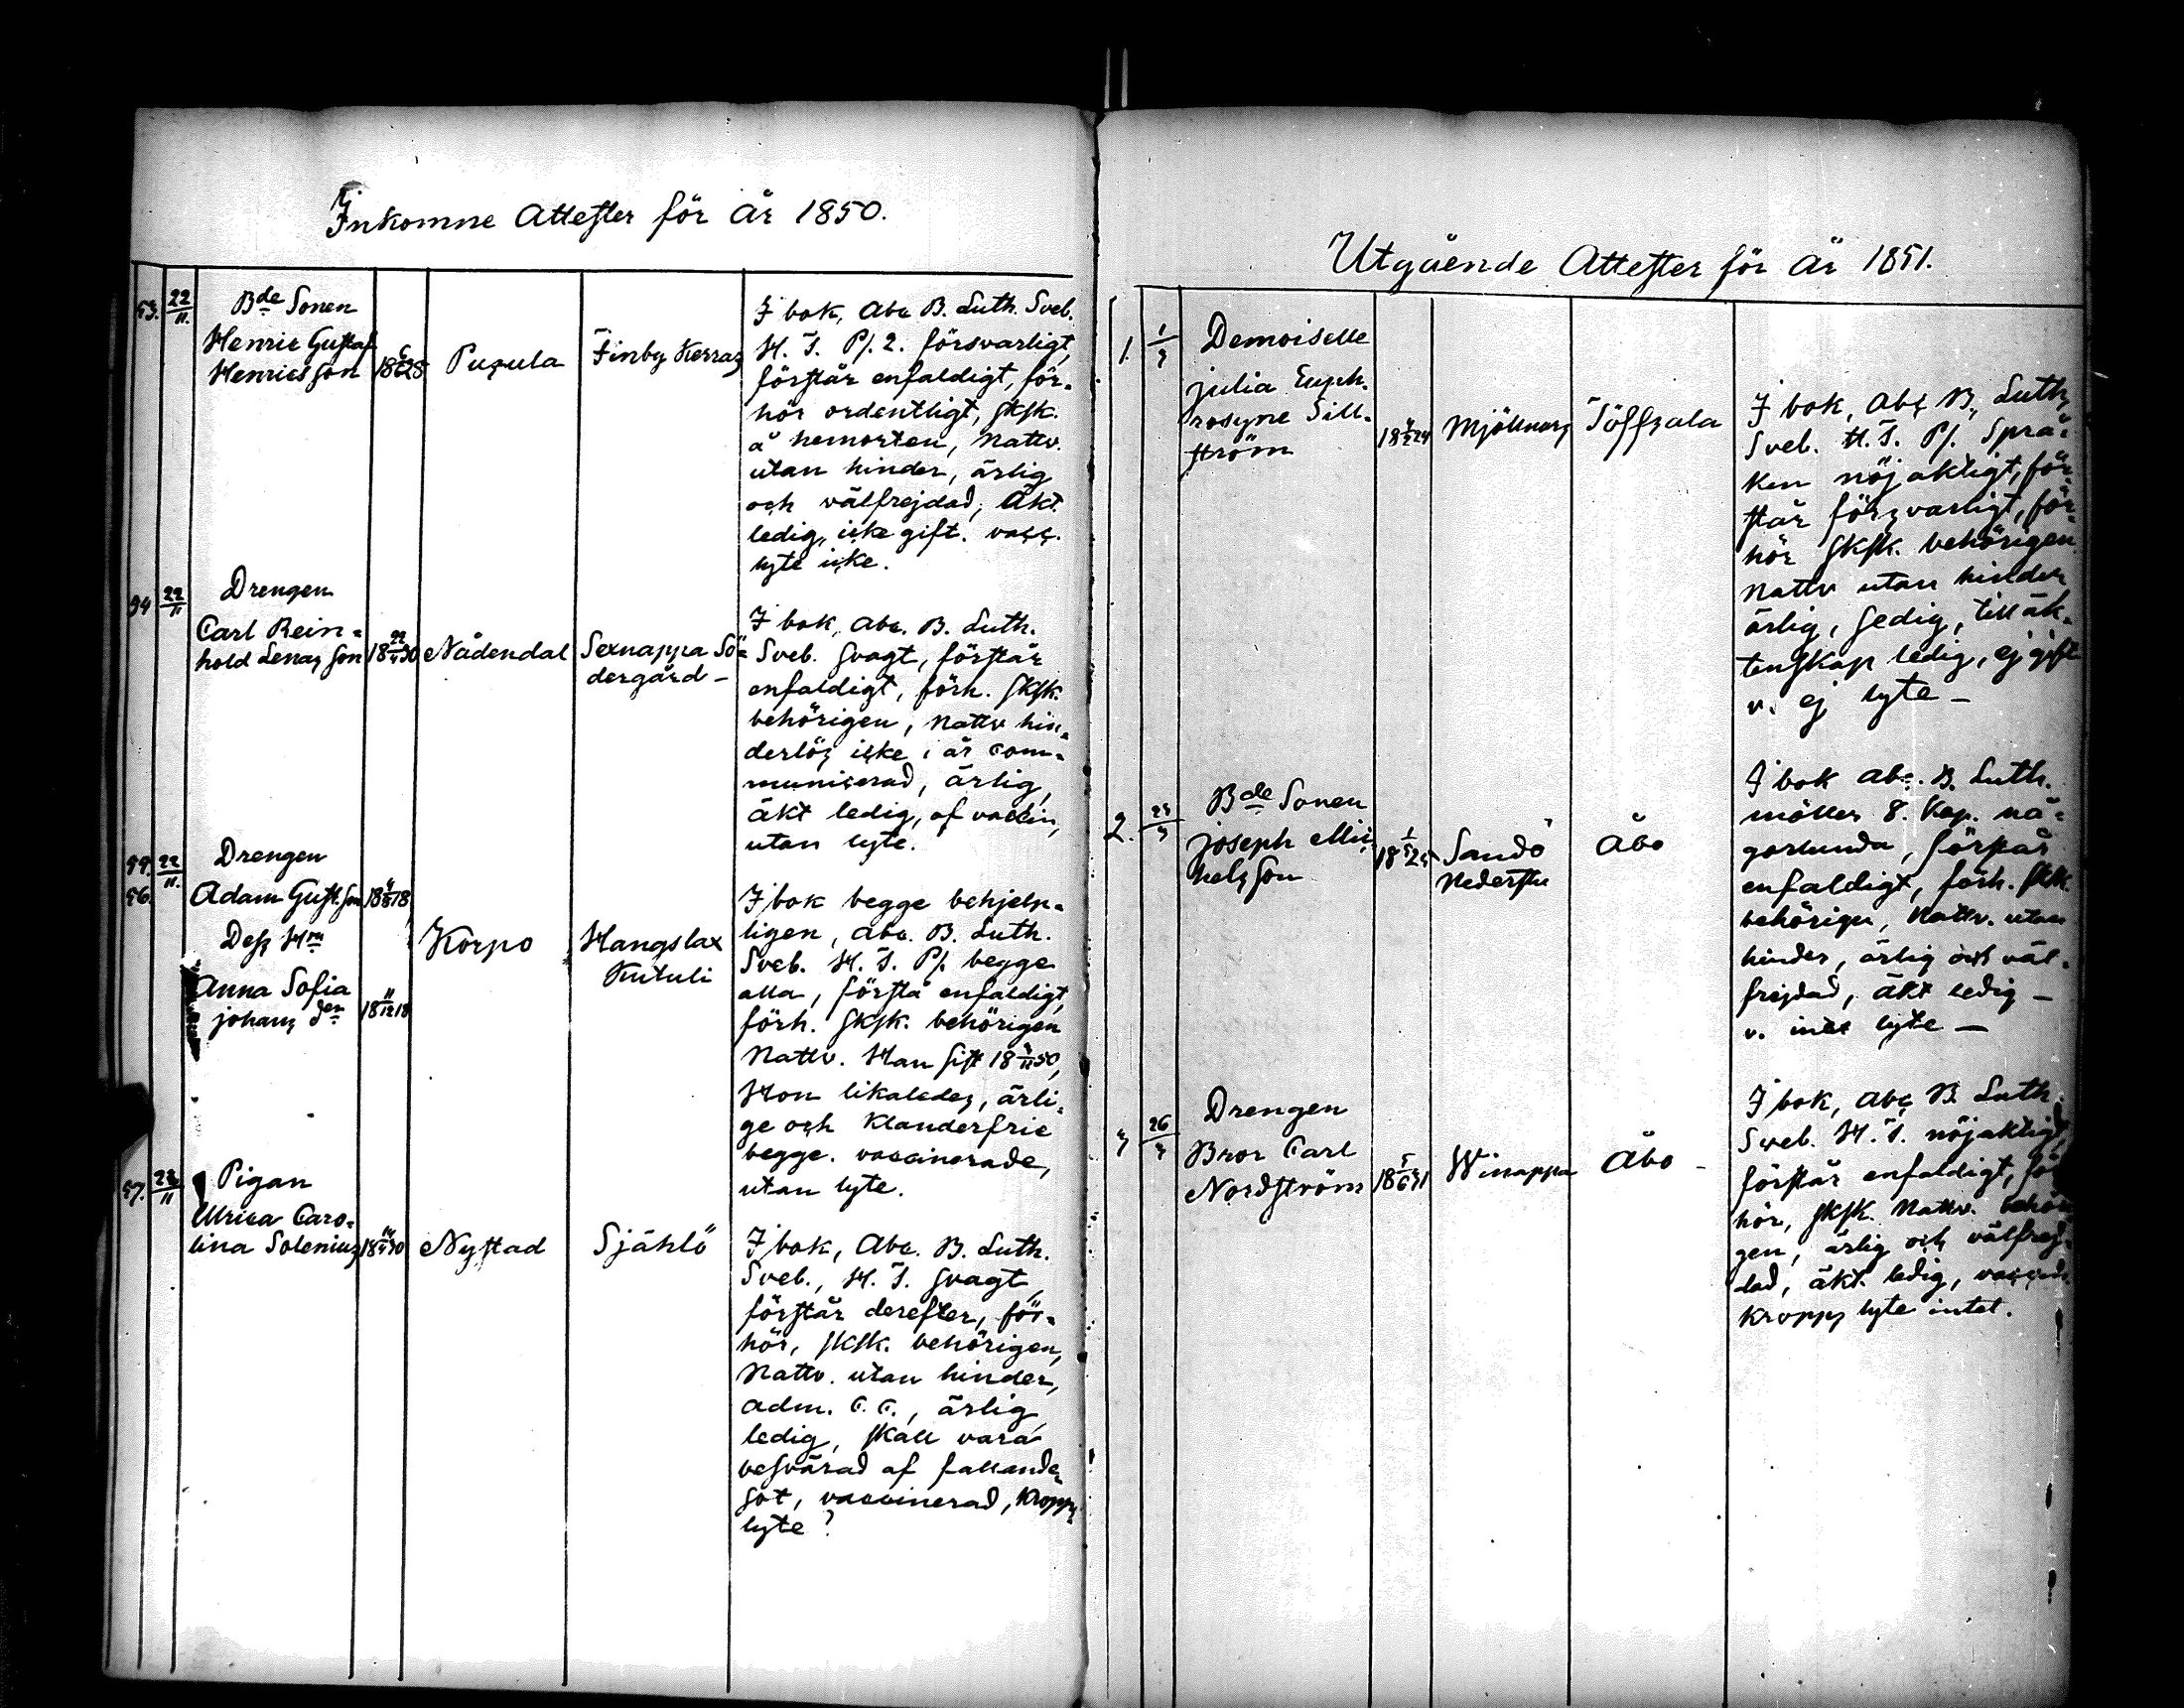 Inkomne Attester för År 1850.
53. 22/11. Bde Sonen
Henric Gustaf
Henricsson 18 28 Pusula Finby Kerras
I bok, Abc B. Luth. Sveb.
H. T. Ps. 2. försvarligt,
förstår enfaldigt, för-
hör ordentligt, skrk.
å hemorten, Nattv.
utan hinder, ärlig
och välfrejdad, Äkt.
ledig, icke gift. vacc.
lyte icke.
54 22/11 Drengen
Carl Rein-
hold Lenasson 18 22 30 Nådendal Sexnappa Sö-
dergård -
I bok, Abc. B. Luth.
Sveb. svagt, förstår
enfaldigt, förh. skrk.
behörigen, Nattv hin-
derlös icke i år com-
municerad, ärlig,
äkt ledig, af vaccin,
utan lyte.
55. 22/11. Drengen
56. Adam Gust.son 18 18
Dess Hru
Anna Sofia
johans den 18 11/12 18
Korpo Hangslax
Kutuli
I bok begge behjelp-
ligen, Abc. B. Luth.
Sveb. H. T. Ps. begge
alla, förstå enfaldigt,
förh. skrk. behörigen
Nattv. Han sist 18 50,
Hon likaledes, ärli-
ge och Klanderfrie
begge. vaccinerade,
utan lyte.
57. 22/11 Pigan
Ulrica Caro-
lina Solenius 18 30 Nystad Själö
I bok, Abc. B. Luth.
Sveb., H. T. svagt,
förstår derefter, för-
hör, skrk. behörigen,
Nattv. utan hinder,
adm. C. C., ärlig
ledig, skall vara
besvärad af fallande-
sot, vaccinerad, Kropps
lyte?
Utgående Attester för År 1851.
1. 1/3 Demoiselle
julia Euph-
rosyne Sill-
ström 18 24 Mjölnars Töffsala
I bok, Abc B, Luth,
Sveb. H. T. Ps. Språ-
ken nöjaktigt, för-
står försvarligt, för-
hör skrk. behörigen
Nattv utan hinder
ärlig, sedig, till äk-
tenskap ledig, ej gift
v. ej lyte -
2. Bde Sonen
joseph Mic-
helsson 18 Sandö
Nederstu Åbo
I bok Abc. B. Luth.
möller 8. Kap. nå-
gorlunda, förstår
enfaldigt, förh. skrk.
behörigen, Nattv. utan
hinder, ärlig och väl-
frejdad, äkt ledig -
v. intet lyte -
3 26/3 Drengen
Bror Carl
Nordström 18 5/6 31 Winappa Åbo -
I bok, Abc B. Luth.
Sveb. H. T. nöjaktigt,
förstår enfaldigt, för
hör, skrk. Nattv. behöri
gen, ärlig och välfrej-
dad, äkt. ledig,
kropps lyte intet.